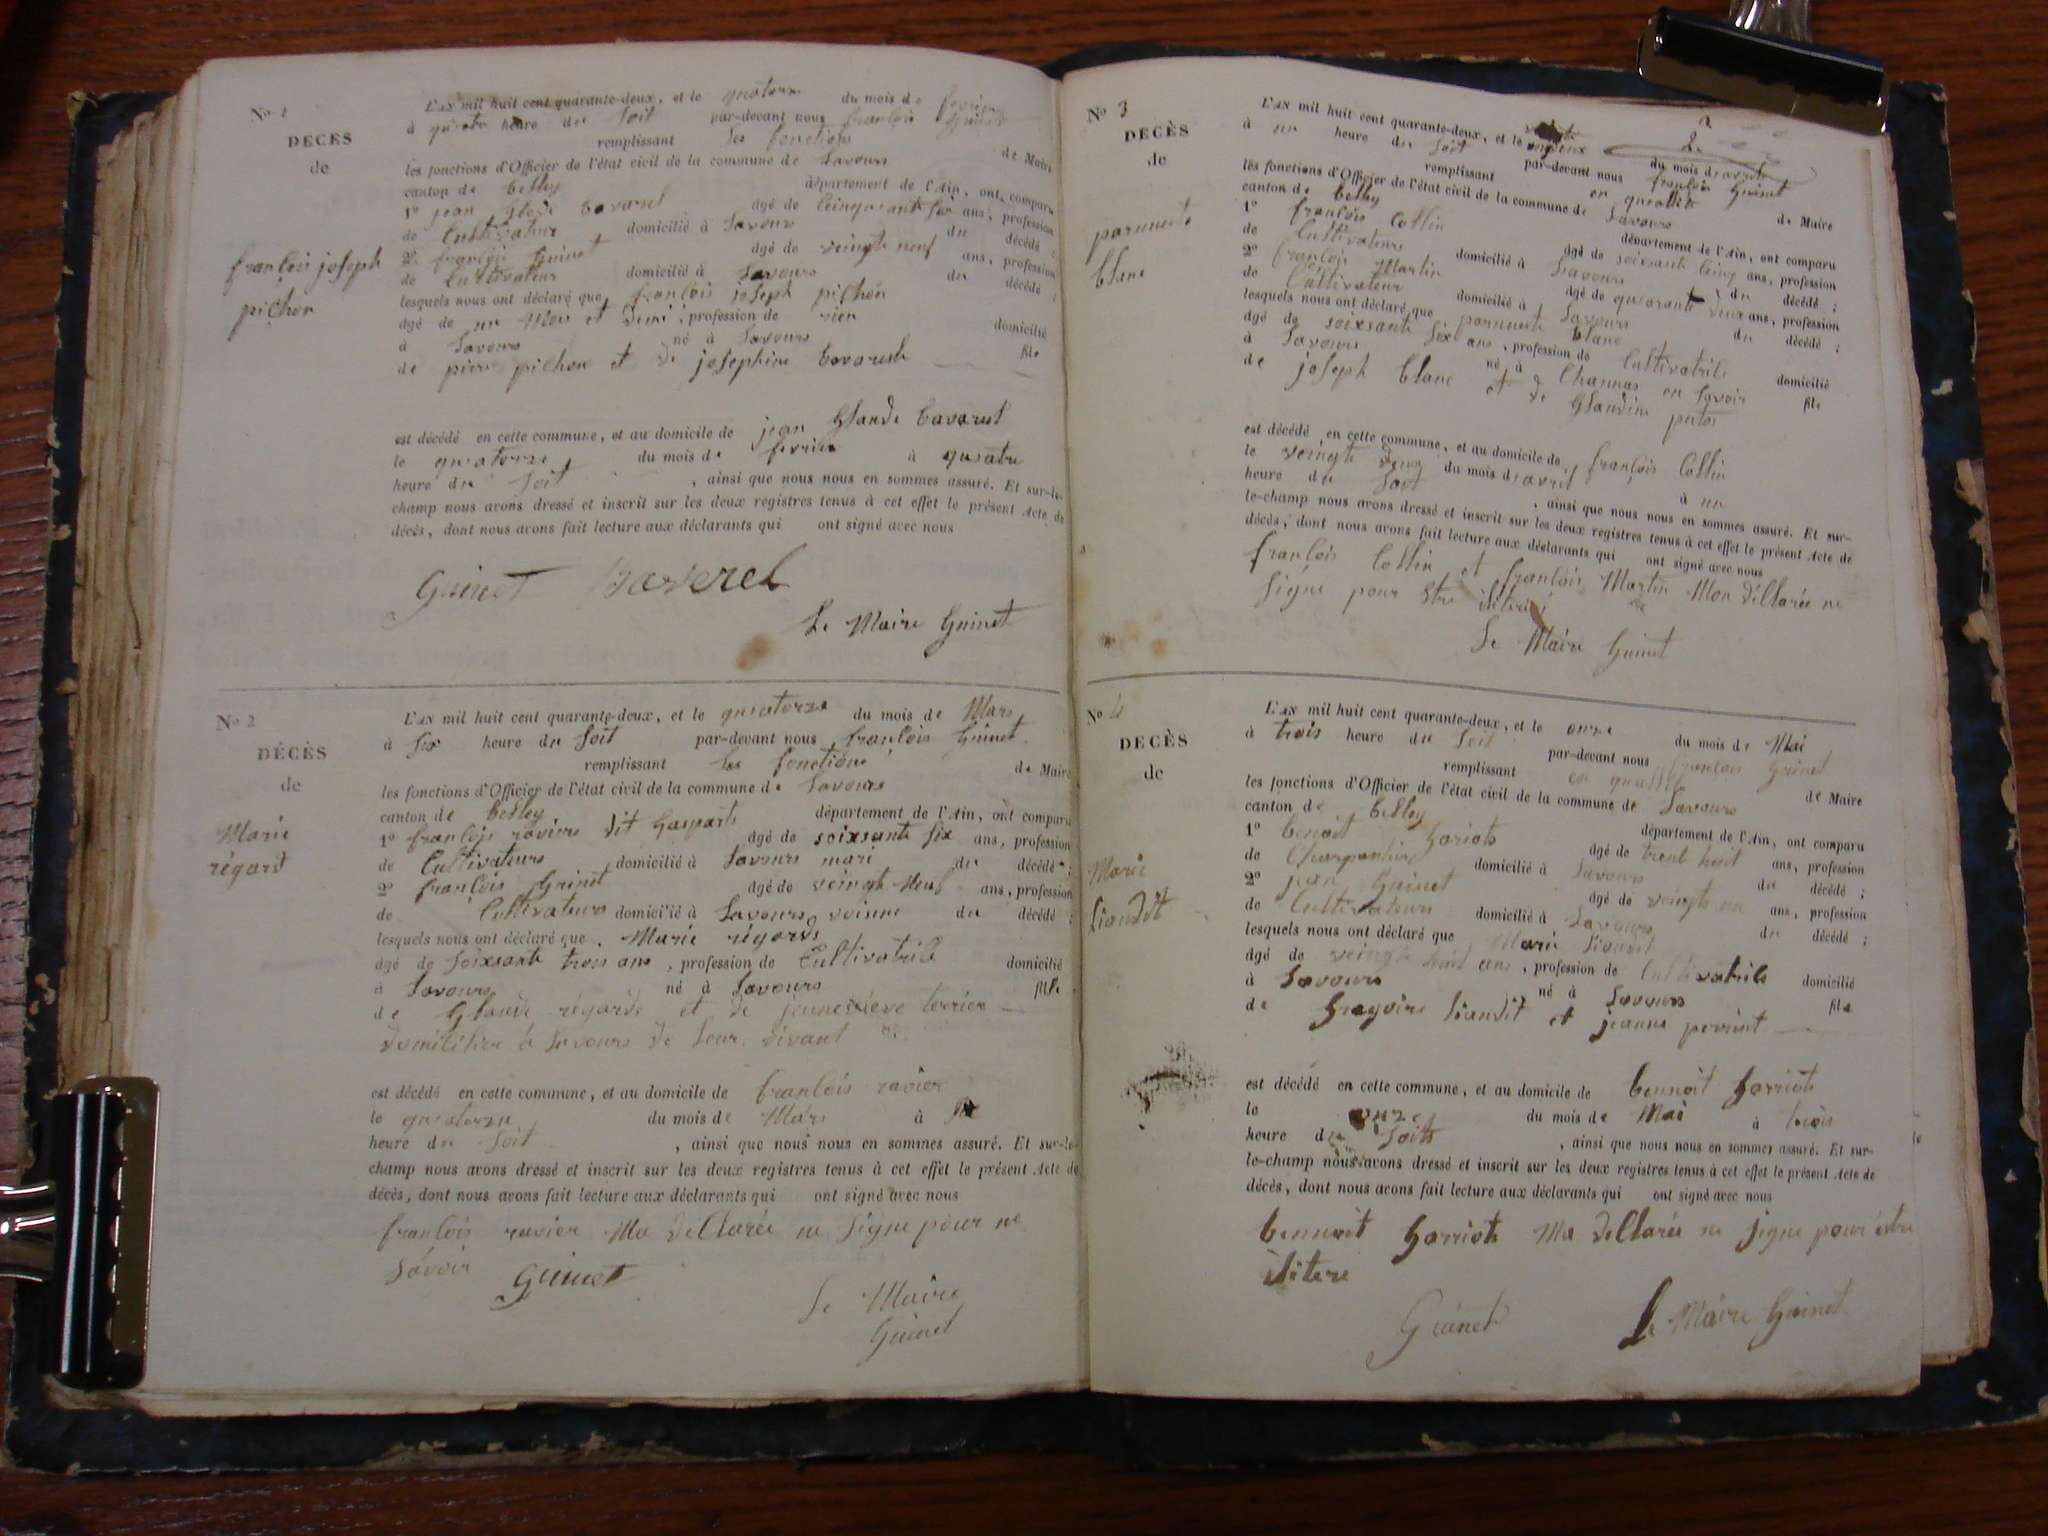 No 1
DECÈS
de
françois joseph
pichon
L'AN mil huit cent quarante-deux, et le quatorze du mois de fevrier
à quatre heure du soit par-devant nous françois Guinet
remplissant les fonctions de Maire
les fonctions d'Officier de l'état civil de la commune de Savours
canton de belley département de l'Ain, ont comparu
1º jean Glode bavarel agé de Cinquante six ans, profession
de Cultivateur domicilié à Savours du décédé ;
2º françois Guinet agé de veingte neuf ans, profession
de Cultivateur domicilié à Savours du décédé ;
lesquels nous ont déclaré que françois joseph pichon
agé de un Mois et demi, profession de rien domicilié
à Savours né à Savours fils
de pierre pichon et de josephine bavarel
est décédé en cette commune, et au domicile de jean Glaude bavarel
le quatorze du mois de fevrier à quatre
heure du soit, ainsi que nous nous en sommes assuré. Et sur-le-
champ nous avons dressé et inscrit sur les deux registres tenus à cet effet le présent Acte de
décès, dont nous avons fait lecture aux déclarants qui ont signé avec nous
Guinet Baverel
Le Maire Guinet
No 2
DÉCÈS
de
Marie
régard
L'AN mil huit cent quarante-deux, et le quatorze du mois de Mars
à six heure du soit par-devant nous françois Guinet
remplissant les fonctions de Maire
les fonctions d'Officier de l'état civil de la commune de Savours
canton de belley département de l'Ain, ont comparu
1º françois raviere dit Gasparts agé de soixsante six ans, profession
de Cultivateurs domicilié à Savours mari du décédé ;
2º françois Guinet agé de veingte Neuf ans, profession
de Cultivateurs domicilié à Savours voisine du décédé ;
lesquels nous ont déclaré que Marie régards
agé de soixsante trois ans, profession de Cultivatrice domicilié
à Savours né à Savours fille
de Glaude régards et de jeunevieve terrier
domicilier à Savours de leur vivant
est décédé en cette commune, et au domicile de françois ravier
le quatorze du mois de Mars à
heure du soit, ainsi que nous nous en sommes assuré. Et sur-le-
champ nous avons dressé et inscrit sur les deux registres tenus à cet effet le présent Acte de
décès, dont nous avons fait lecture aux déclarants qui ont signé avec nous
françois ravier Ma déClarée ne signe pour ne
savoir Guinet
Le Maire
Guinet
No 3
DÉCÈS
de
parnnete
blanc
L'AN mil huit cent quarante-deux, et le du mois d'avril
à un heure du soit par-devant nous françois Guinet
remplissant en quallité de Maire
les fonctions d'Officier de l'état civil de la commune de Savours
canton de belley département de l'Ain, ont comparu
1º françois Collin agé de soixsante Cinq ans, profession
de Cultivateurs domicilié à Savours du décédé ;
2º françois Martin agé de quarante deux ans, profession
de Cultivateur domicilié à Savours du décédé ;
lesquels nous ont déclaré que parnnete blanc
agé de soixsante six ans, profession de Cultivatrice domicilié
à Savours né à Channas en Savoir fils
de joseph blanc et de Glaudine
est décédé en cette commune, et au domicile de françois Collin
le veingte deux du mois d'avril à un
heure du soit, ainsi que nous nous en sommes assuré. Et sur-
le-champ nous avons dressé et inscrit sur les deux registres tenus à cet effet le présent Acte de
décès, dont nous avons fait lecture aux déclarants qui ont signé avec nous
françois Collin et françois Martin Mon déClarée ne
signe pour etre iliteré
Le Maire Guinet
No 4
DECÈS
de
Marie
Liaudit
L'AN mil huit cent quarante-deux, et le onze du mois de Mai
à trois heure du soit par-devant nous françois Guinet
remplissant en quallité de Maire
les fonctions d'Officier de l'état civil de la commune de Savours
canton de belley département de l'Ain, ont comparu
1º benoit Goriots agé de trent huit ans, profession
de Charpentier domicilié à Savours du décédé ;
2º jean Guinet agé de veingte un ans, profession
de Cultivateurs domicilié à Savours du décédé ;
lesquels nous ont déclaré que Marie Liaudit
agé de veingte huit ans, profession de Cultivatrice domicilié
à Savours né à Savours fils
de Gregoire Liaudit et jeanne perrinet
est décédé en cette commune, et au domicile de bennoit Gorriots
le onze du mois de Mai à trois
heure du Soits, ainsi que nous nous en sommes assuré. Et sur-
le-champ nous avons dressé et inscrit sur les deux registres tenus à cet effet le présent Acte de
décès, dont nous avons fait lecture aux déclarants qui ont signé avec nous
bennoit Gorriots Ma déClarée ne signe pour être
ilitere
Guinet Le Maire Guinet